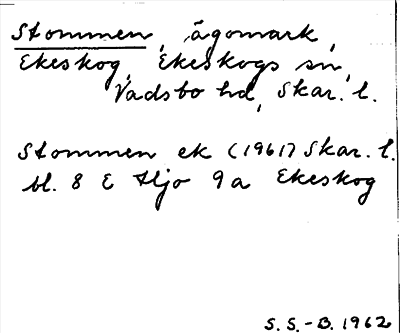 Stommen, ägomark,
Ekeskog, Ekeskogs sn,
Vadsbo hd, Skar. l.
Stommen ek (1961) Skar. l.
bl. 8 E Hjo 9a Ekeskog
S. S.-B. 1962